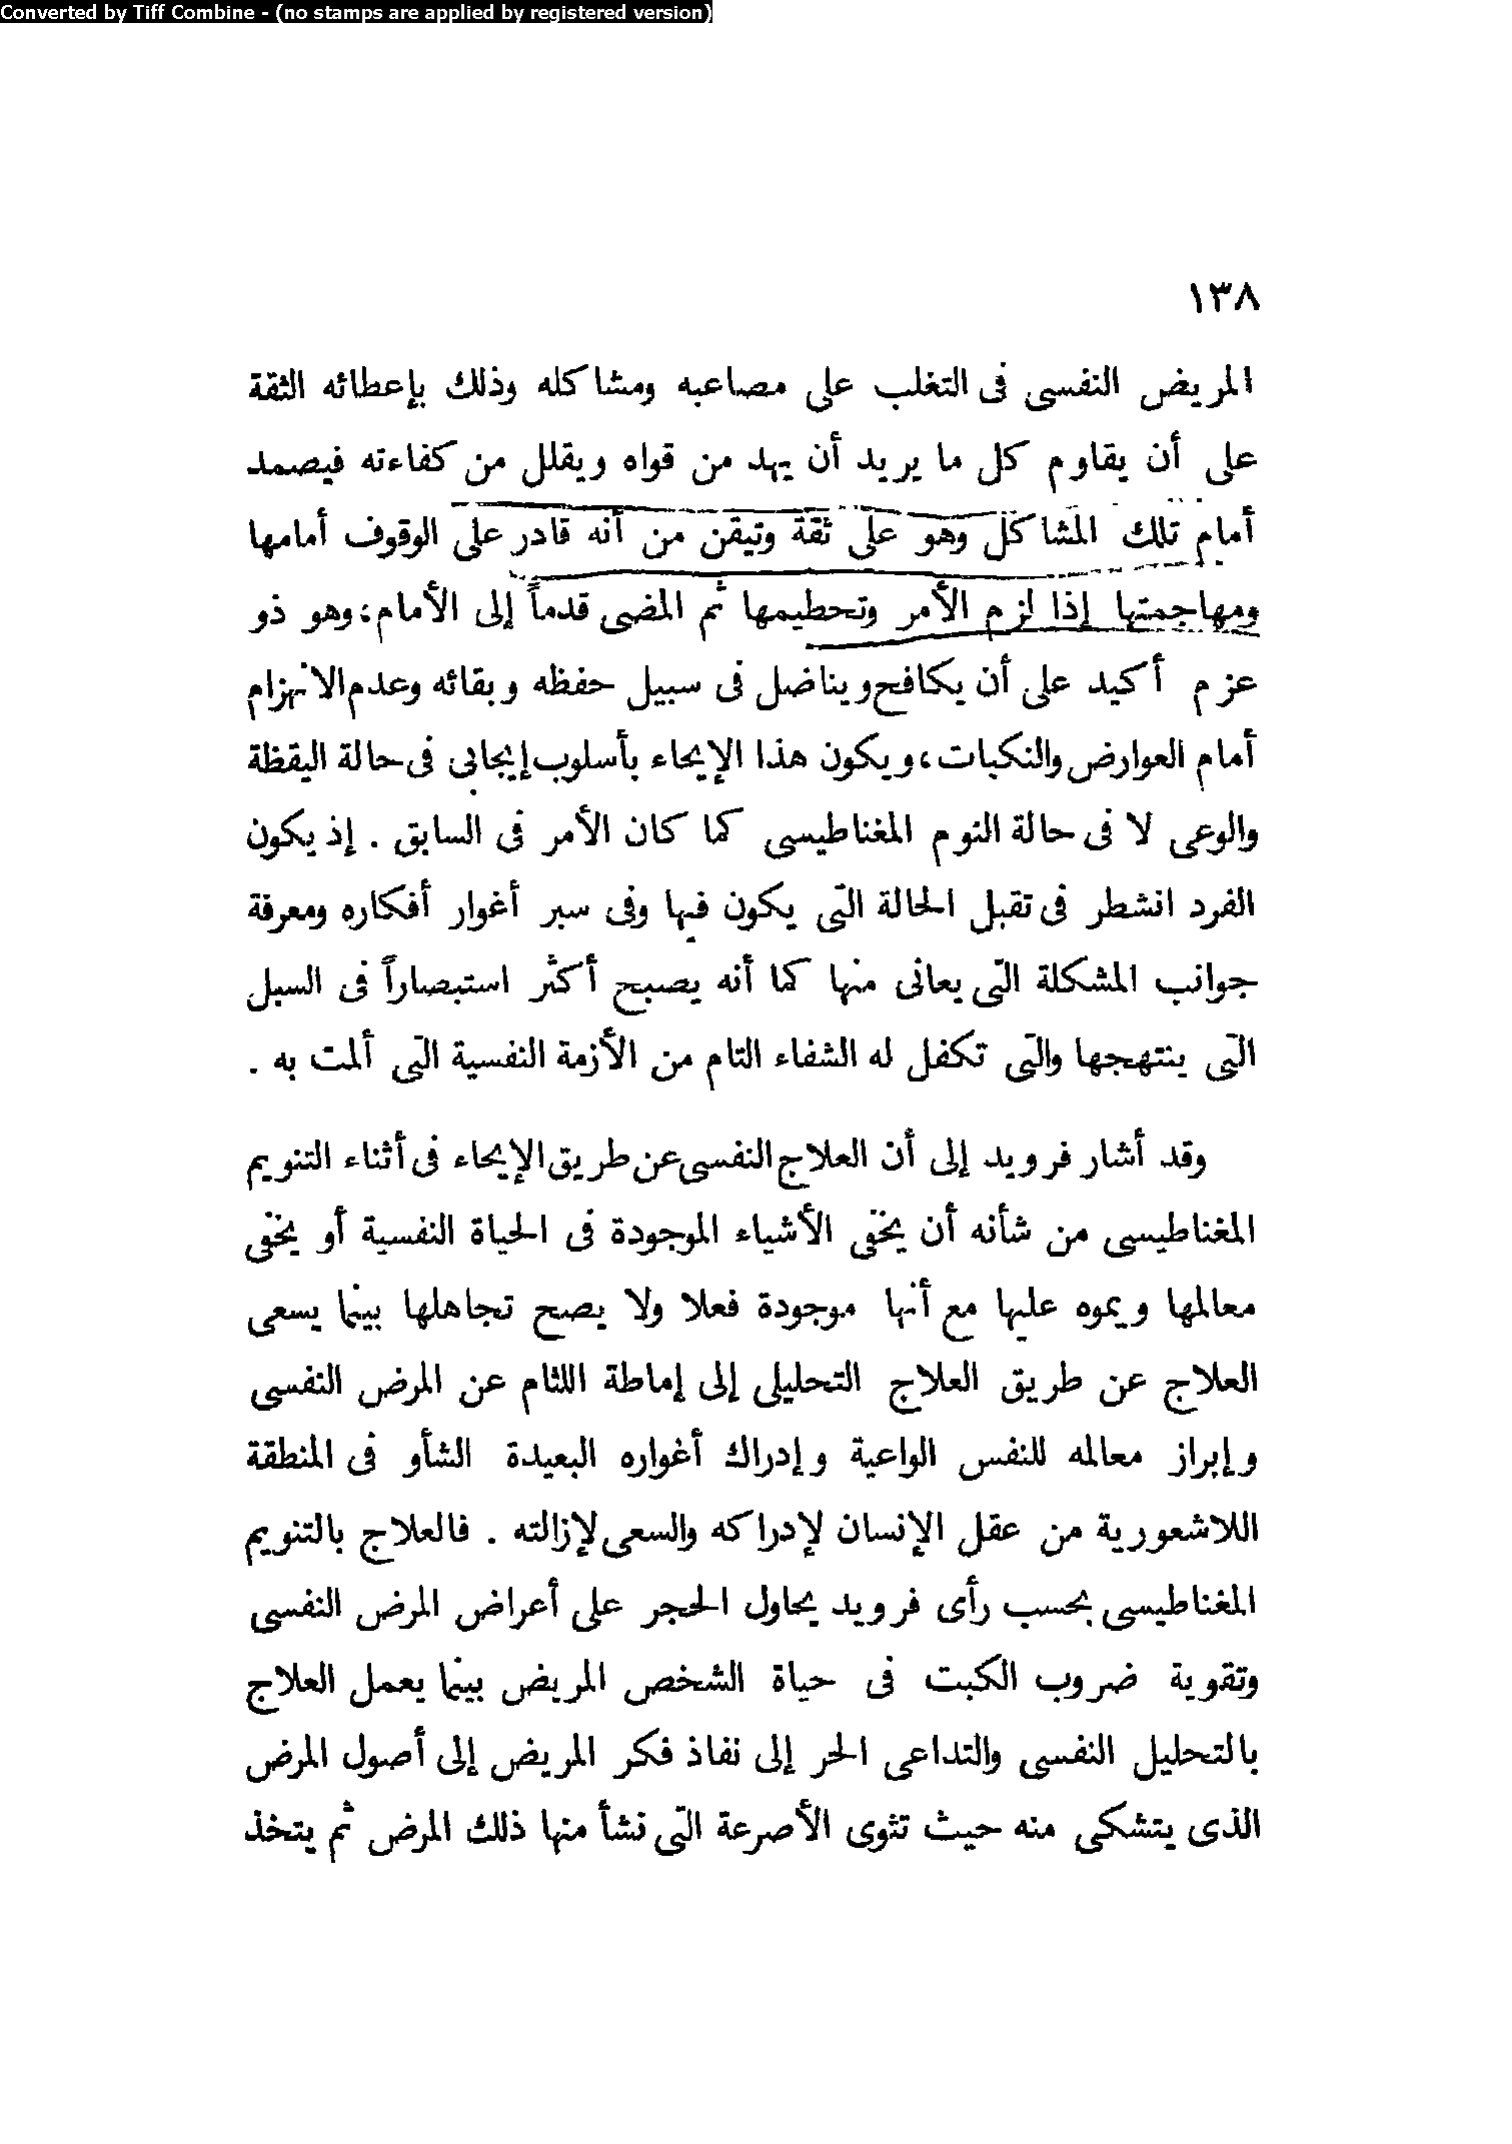 Converted by Tiff Combine - (no stamps are applied by registered version)
١٣٨
المريض النفسى فى التغلب على مصاعبه ومشاكله وذلك بإعطائه الثقة
على أن يقاوم كل ما يريد أن يهد من قواه ويقلل من كفاءته فيصمد
أمام تلك المشاكل وهو على ثقة وتيقن من أنه قادر على الوقوف أمامها
ومهاجمتها إذا لزم الأمر وتحطيمها ثم المضى قدماً إلى الأمام؛ وهو ذو
عزم أكيد على أن يكافح ويناضل فى سبيل حفظه وبقائه وعدم الانهزام
أمام العوارض والنكبات، ويكون هذا الإيحاء بأسلوب إيجابى فى حالة اليقظة
والوعى لا فى حالة النوم المغناطيسى كما كان الأمر فى السابق . إذ يكون
الفرد انشطر فى تقبل الحالة التى يكون فيها وفى سبر أغوار أفكاره ومعرفة
جوانب المشكلة التى يعانى منها كما أنه يصبح أكثر استبصاراً فى السبل
التى ينتهجها والتى تكفل له الشفاء التام من الأزمة النفسية التى ألمت به .
وقد أشار فرويد إلى أن العلاج النفسى عن طريق الإيحاء فى أثناء التنويم
المغناطيسى من شأنه أن يخفى الأشياء الموجودة فى الحياة النفسية أو يخفى
معالمها ويموه عليها مع أنها موجودة فعلا ولا يصح تجاهلها بينما يسعى
العلاج عن طريق العلاج التحليلى إلى إماطة اللثام عن المرض النفسى
وإبراز معالمه للنفس الواعية وإدراك أغواره البعيدة الشأو فى المنطقة
اللاشعورية من عقل الإنسان لإدراكه والسعى لإزالته . فالعلاج بالتنويم
المغناطيسى بحسب رأى فرويد يحاول الحجر على أعراض المرض النفسى
وتقوية ضروب الكبت فى حياة الشخص المريض بينما يعمل العلاج
بالتحليل النفسى والتداعى الحر إلى نفاذ فكر المريض إلى أصول المرض
الذى يتشكى منه حيث تثوى الأصرعة التى نشأ منها ذلك المرض ثم يتخذ